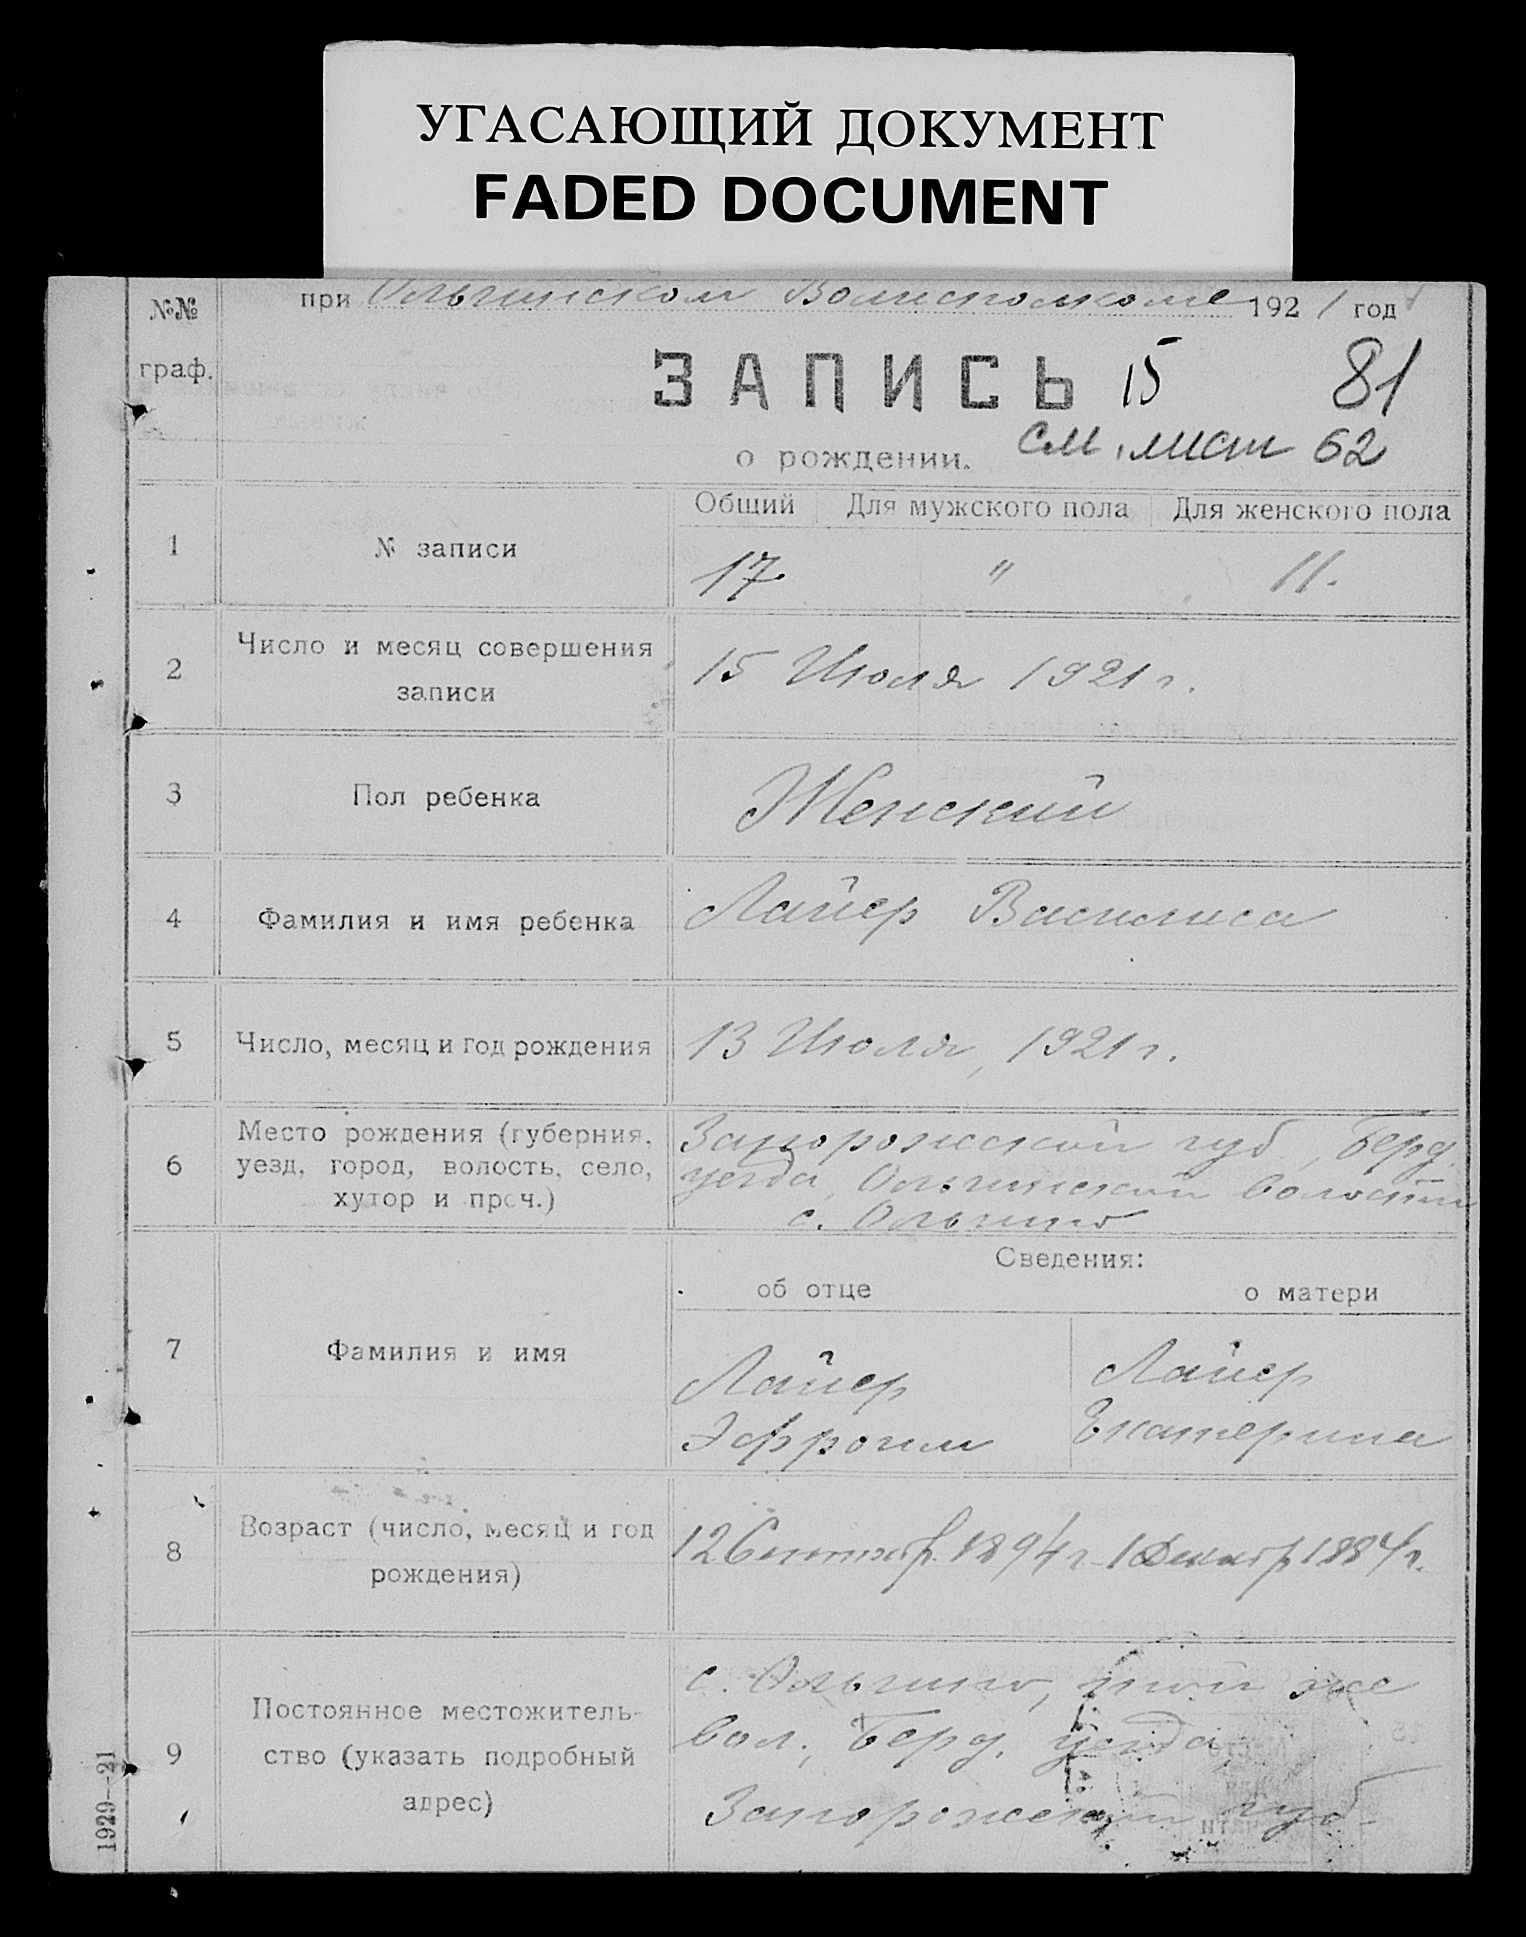 УГАСАЮЩИЙ ДОКУМЕНТ
FADED DOCUMENT
№№ граф.
при Ольгинском Волисполкоме 1921 год
ЗАПИСЬ 15 81
о рождении. см. лист 62
Общий Для мужского пола Для женского пола
1 № записи 17. " 11.
2 Число и месяц совершения
записи
15 Июля 1921 г.
3 Пол ребенка Женский
4 Фамилия и имя ребенка Лайер Василиса
5 Число, месяц и год рождения 13 Июля, 1921 г.
6 Место рождения (губерния,
уезд, город, волость, село,
хутор и проч.)
Запорожской губ., Берд.
уезда, Ольгинской волости
с. Ольгино
Сведения:
об отце о матери
7 Фамилия и имя
Лайер
Эфроим
Лайер
Екатерина
8 Возраст (число, месяц и год
рождения)
12 Сентябр. 1894 г. 1 Декабр 1884 г.
9 Постоянное местожитель-
ство (указать подробный
адрес)
с. Ольгино, той же
вол., Берд. уезда,
Запорожской губ.
1929—21